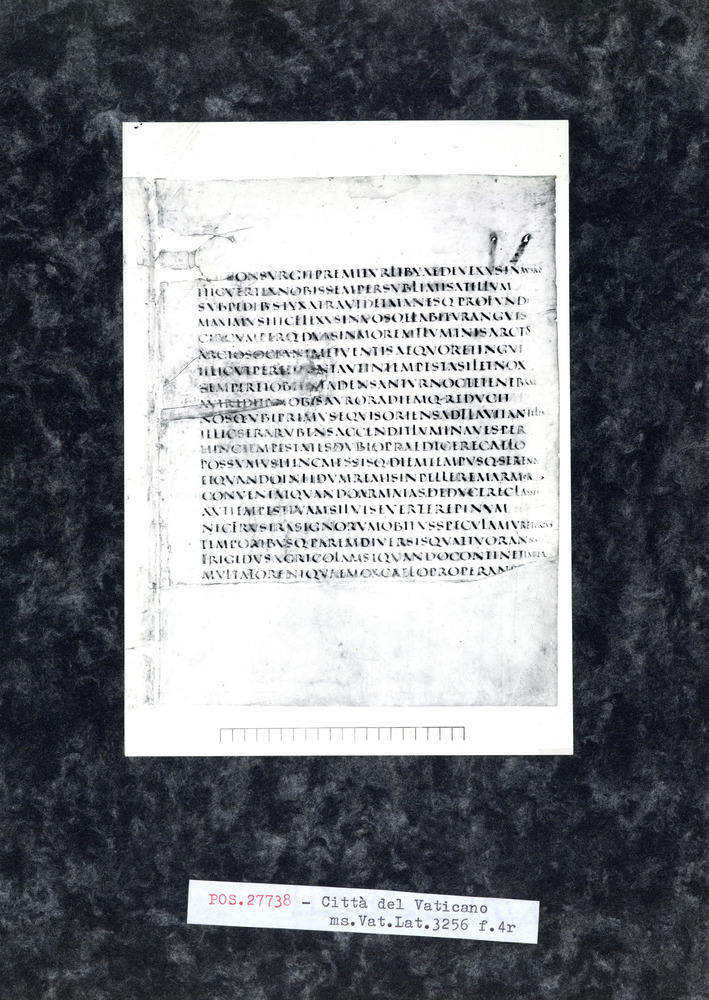 ONSVRGITPREMITVRLIBYAEDEVEXVSINAVSTROS
HICVERTEXNOBISSEMPERSVBLIMISATILLVM
SVBPEDIBSTYXATRAVIDETMANESQ·PROFVNDI
MAXIMVSHICFLEXVSINVOSOELABITVRANGVIS
CIRCVMPERQ·DVASINMOREMFLVMINISARCTOS
ARCTOSOCEANIMETVENTISAEQVORETINGVI
ILLICVTPERHIBENTAVTINTEMPESTASILETNOX
SEMPERETOBTENTADENSANTVRNOCTETENEBRAE
AVTREDITANOBISAVRORADIEMQ·REDVCIT
NOSQVBIPRIMVSEQVISORIENSADFLAVITANHELIS
ILLICSERARVBENSACCENDITLVMINAVESPER
HINCTEMPESTATESDVBIOPRAEDICERECAELO
POSSVMVSHINCMESSISQ·DIEMTEMPVSQ·SERENDI
ETQVANDOINFIDVMREMISINPELLEREMARMOR
CONVENIATQVANDOARMATASDEDVCERECLASSIS
AVTTEMPESTIVAMSILVISEVERTEREPINVM
NECFRVSTRASIGNORVMOBITVSSPECVLAMVRETORTVS
TEMPORIBVSQ·PAREMDIVERSISQVATTVORANNVM
FRIGIDVSAGRICOLAMSIQVANDOCONTINETIMBER
MVLTAFORENTQVAEMOXCAELOPROPERAN
POS.27738 - Città del Vaticano
ms.Vat.Lat.3256 f.4r